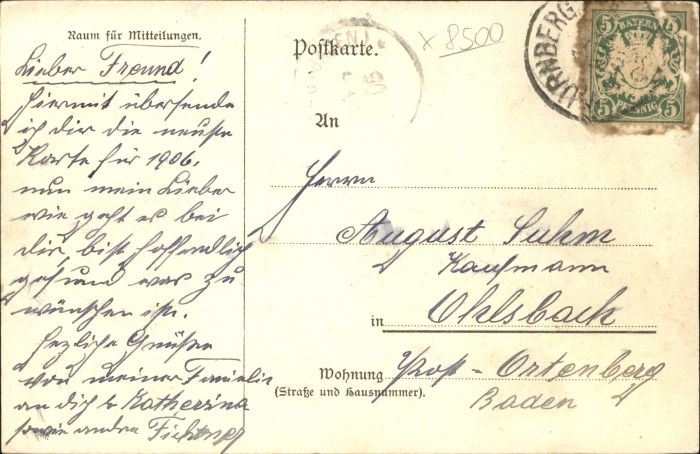 Raum für Mitteilungen.
Lieber Freund!
Hiermit übersende
ich dir die neuste
Karte für 1906.
nun mein Lieber
wie geht es bei
dir, bist hoffendlich
gesund was zu
wünschen ist.
Hezliche Grüße
von meiner Familie
an dich Katherina
sowie andre
Postkarte.
x 8500
NÜRNBERG
5 BAYERN 5
5 PFENNIG 5
An
Herrn
August Suhm
Kaufmann
in Ohlsbach
Wohnung Post-Ortenberg
(Straße und Hausnummer).
Baden